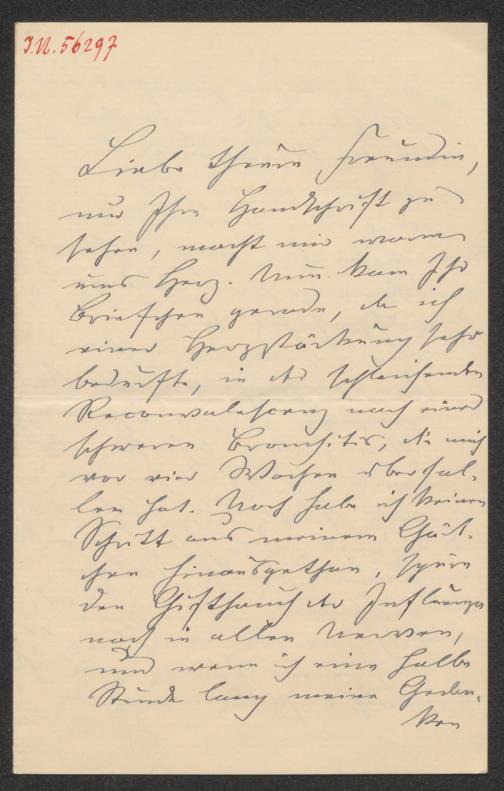 I.N. 56297
Liebe theure Freundin,
nur Ihre Handschrift zu
sehen, macht mir warm
ums Herz. Nun kam Ihr
Briefchen gerade, da ich
einer Herzstärkung sehr
bedurfte, in der schleichenden
Reconvalescenz nach einer
schweren Bronchitis, die mich
vor vier Wochen überfal-
len hat. Noch habe ich keinen
Schritt aus meinem Gärt-
chen hinausgethan, spüre
den Gifthauch der Influenza
noch in allen Nerven,
und wenn ich eine halbe
Stunde lang meine Gedan-
ken